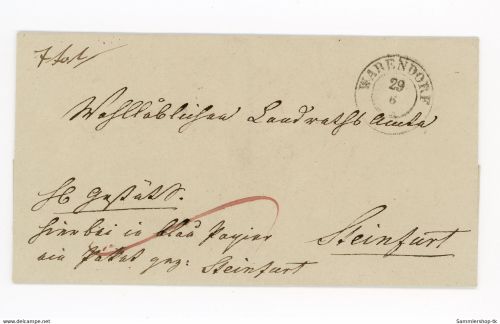 WARENDORF
29
6
Wohllöblichen Landraths Amte
hierbei in blau Papier
ein Packet gez: Steinfurt
Steinfurt
www.allnumis.com
Sammlershop-tk